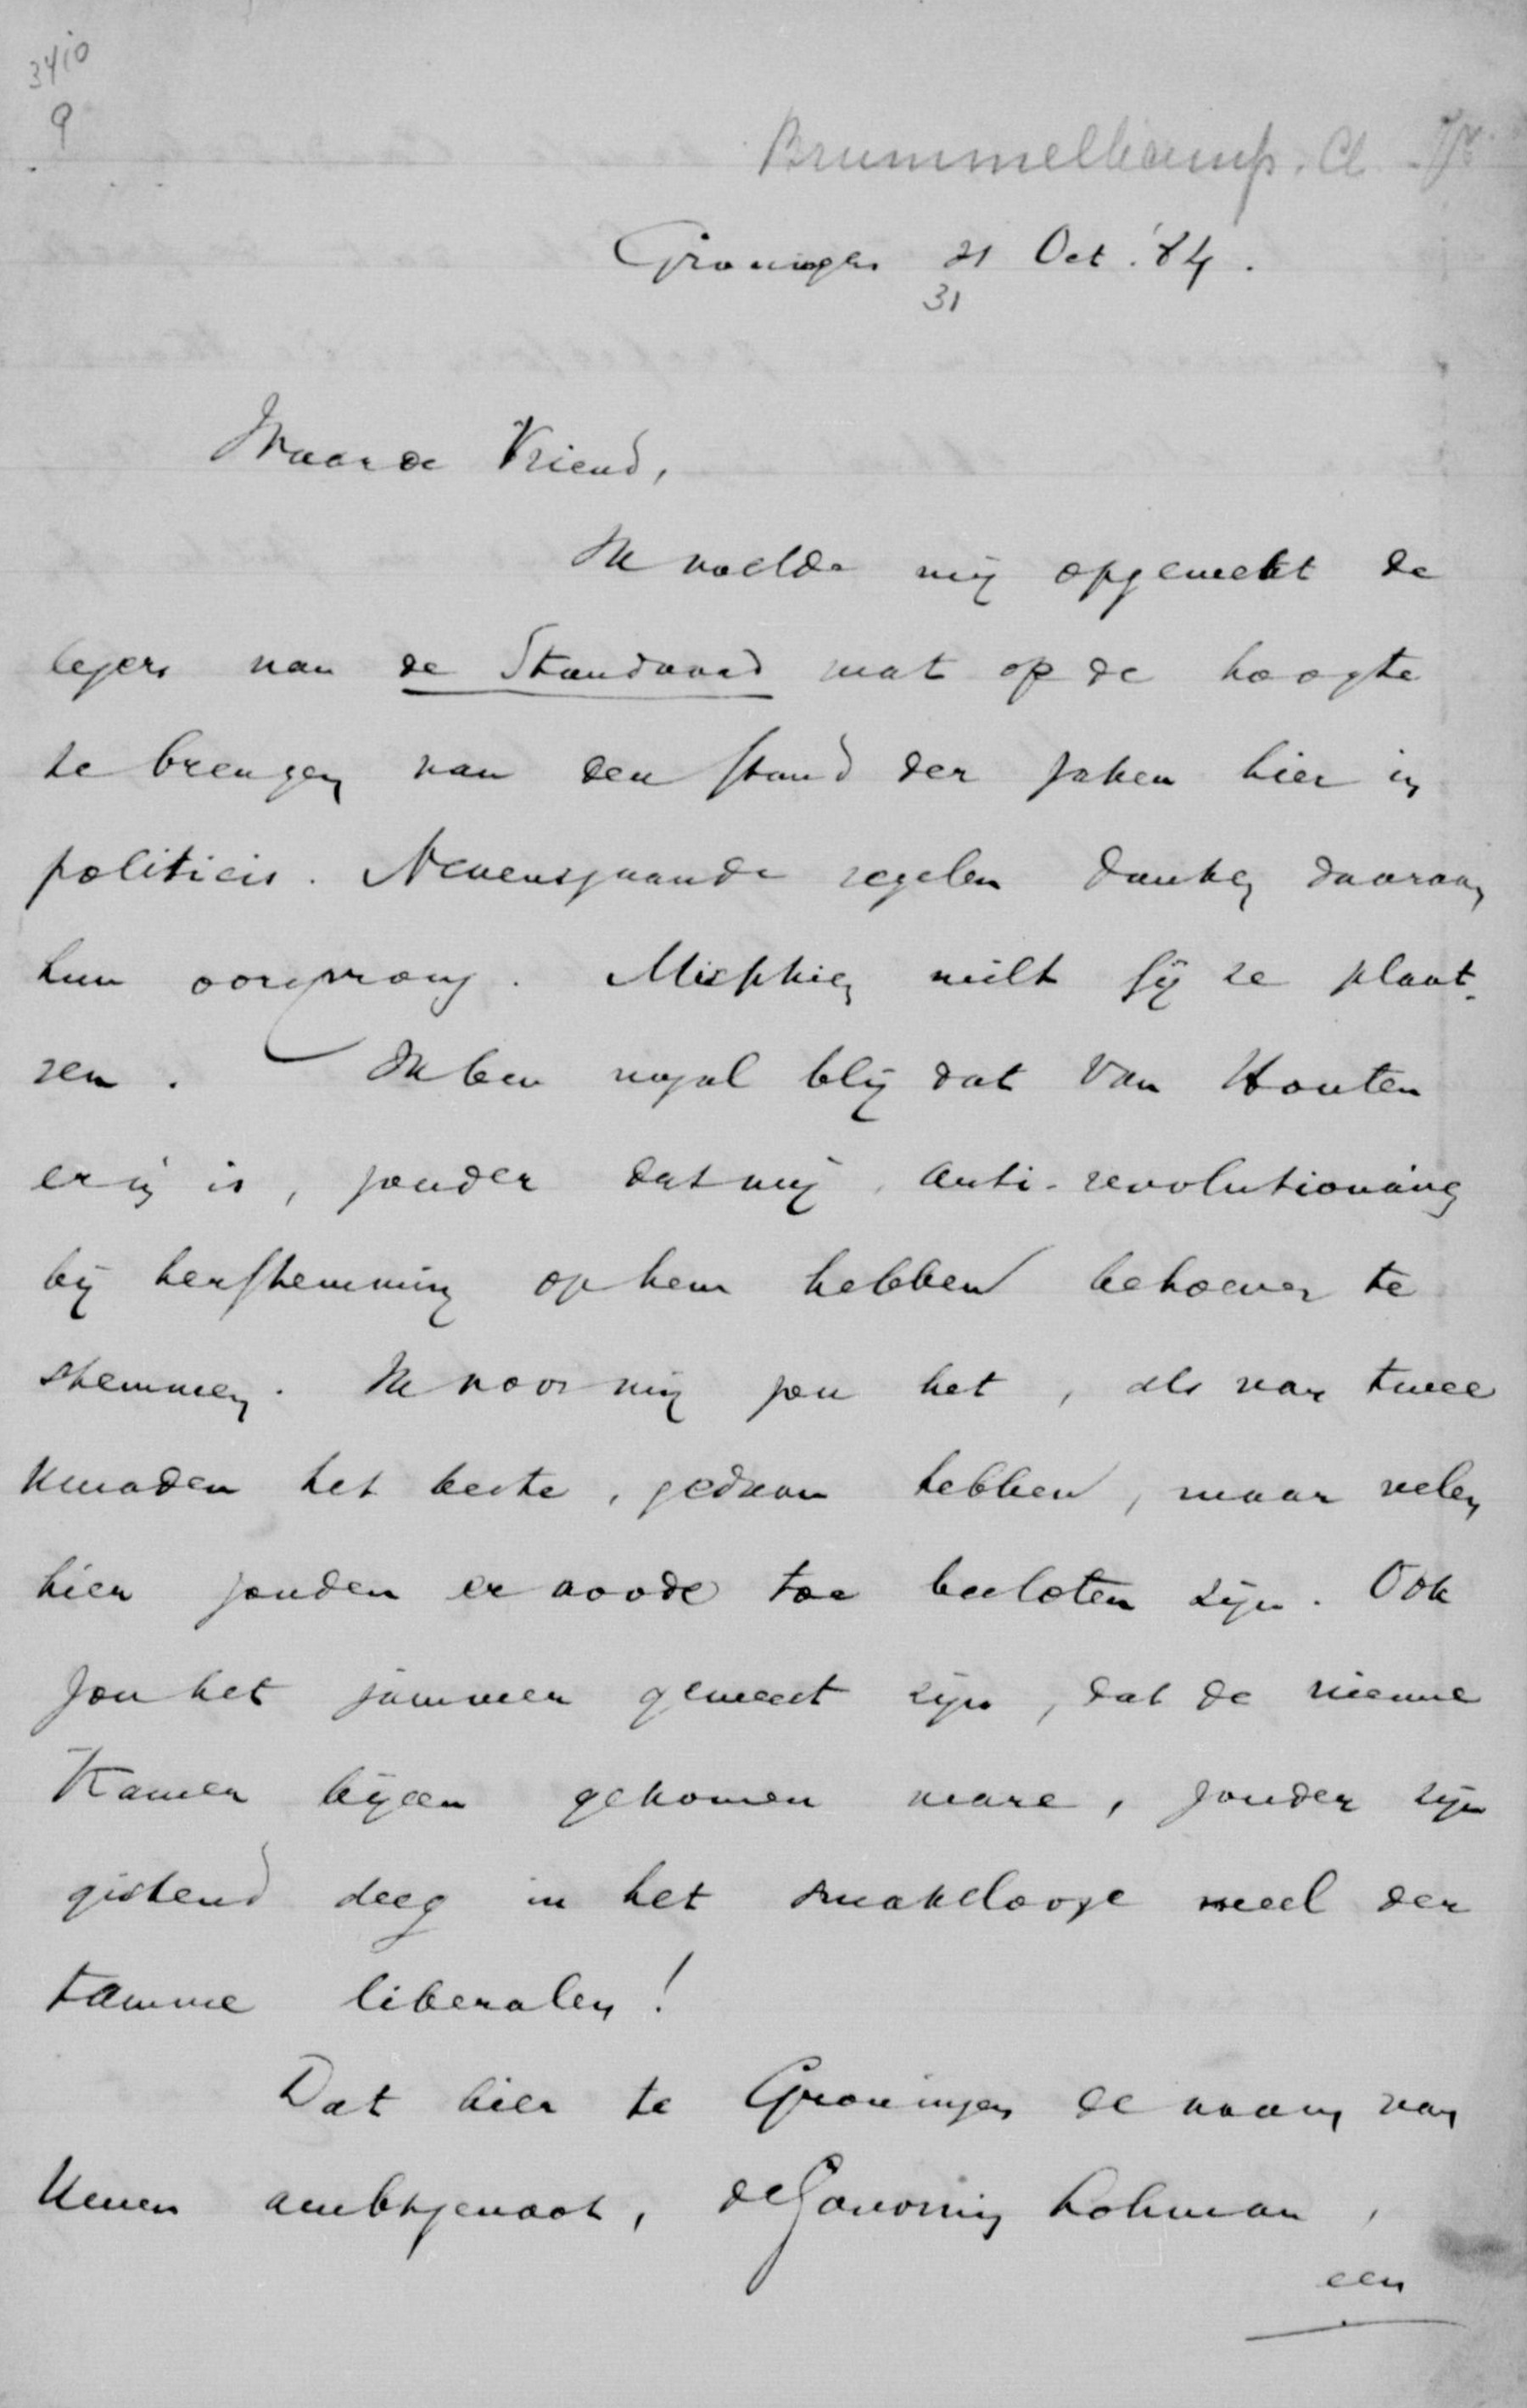 3410
9
Brummelkamp. A. Jr.
Groningen 21 Oct. '84.
31
Waarde Vriend,
Ik voelde mij opgewekt de
lezers van de Standaard wat op de hoogte
te brengen van den stand der zaken hier in
politicis. Nevensgaande regelen danken daaraan
hun oorsprong. Misschien wilt gij ze plaat-
sen. Ik ben nogal blij dat Van Houten
erin is, zonder dat wij anti-revolutionairen
bij herstemming op hem hebben behoeven te
stemmen. Ik voor mij zou het, als van twee
kwaden het beste, gedaan hebben, maar velen
hier zouden er noode toe besloten zijn. Ook
zou het jammer geweest zijn, dat de nieuwe
Kamer bijeen gekomen ware, zonder zijn
gistend deeg in het smakelooze meel der
tamme liberalen!
Dat hier te Groningen de naam van
Uwen ambtgenoot, de Savornin Lohman,
een